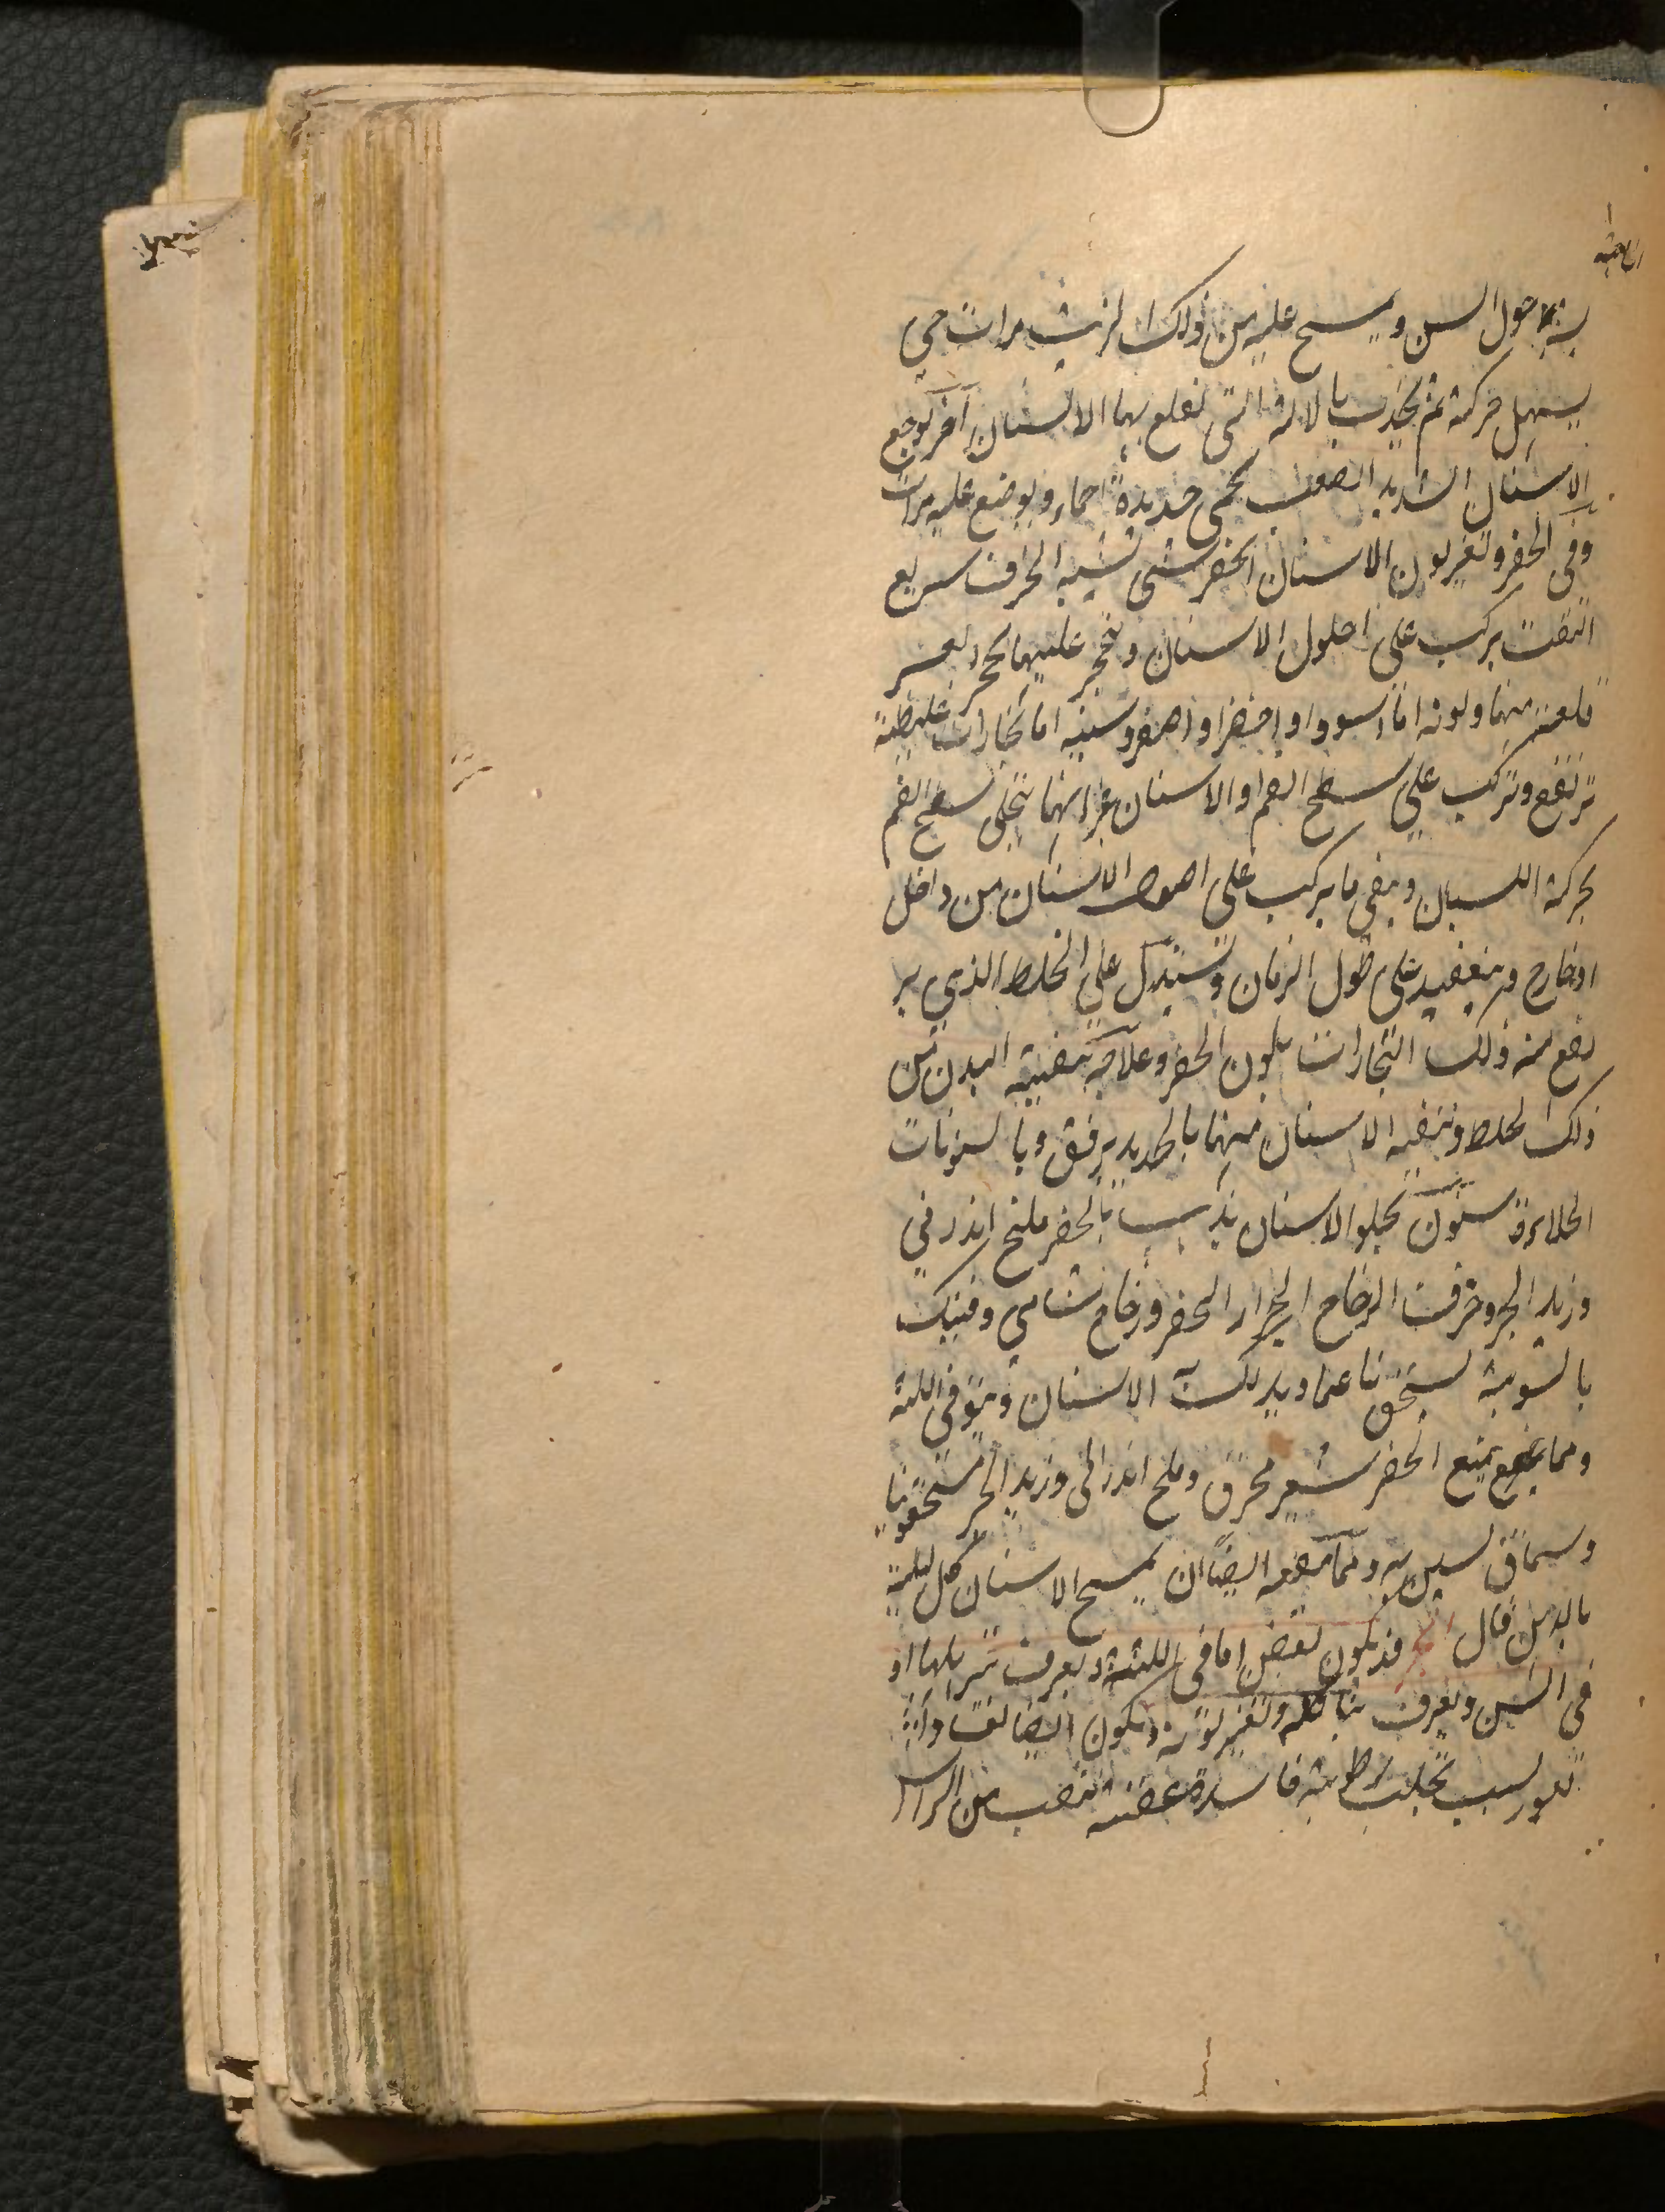 حول السن ويمسح عليه من ذلك الزيت مرات حتى
يسهل حركته ثم يجذب بالالة التى تقلع بها الاسنان آخر لوجع
الاسنان الشديد الصعب تحمى حديدة احماء ويوضع عليه مرات
وفى الحفر وتغير لون الاسنان الحفر شى شبيه الخزف سريع
التفتت يركب على اصول الاسنان وتحجر عليها تحجر يعسر
قلعه منها ولونه اما اسود او اخضر او اصفر وسببه اما بخارات غليظة
ترتفع وتركب على سطح الفم او الاسنان غير انها تنجلى سطح الفم
بحركة اللسان ويبقى ما يركب على اصول الاسنان من داخل
او خارج وينعقد على طول الزمان وتستدل على الخلط الذي ير
تفع منه ذلك البخارات بلون الحفر وعلاجه تنقية البدن من
ذلك الخلط وتنقيه الاسنان منها بالحديد برفق وبالسنونات
الجلاءة سنون يجلو الاسنان يذهب بالحفر ملح اندرني
وزبد البحر وخزف الزجاج الجرار الخضر وزجاج شامي وفنبك
بالسوية يسحق ناعما ويدلك الاسنان ويتوقى اللثة
ومما يمنع الحفر شعير محرق وملح اندرانى وزبد البحر مسحقونيا
وسماق يستن به ومما يمنعه ايضا ان يمسح الاسنان كل ليلة
بالدهن قال قد يكون لعفن اما فى اللثة ويعرف بترهلها او
فى السن ويعرف بتاكله وتغير لونه ويكون ايضا لقلاع او
بثور بسبب تحلب رطوبة فاسدة عفنه تنصب من الراس